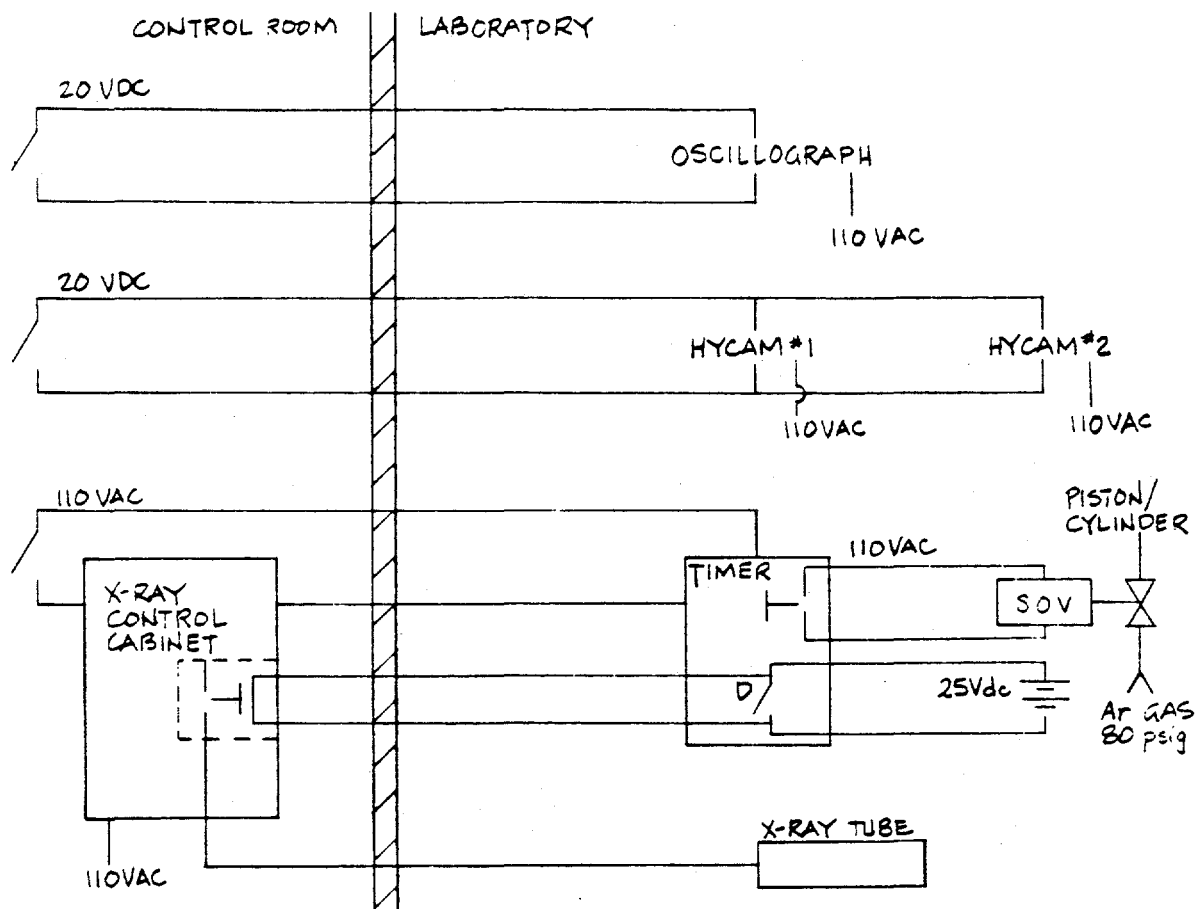 CONTROL ROOM
LABORATORY
20 VDC
OSCILLOGRAPH
110 VAC
20 VDC
HYCAM #1
HYCAM #2
110 VAC
110 VAC
110 VAC
PISTON/
CYLINDER
TIMER
110 VAC
X-RAY
CONTROL
CABINET
SOV
D
25Vdc
Ar GAS
80 psig
X-RAY TUBE
110VAC